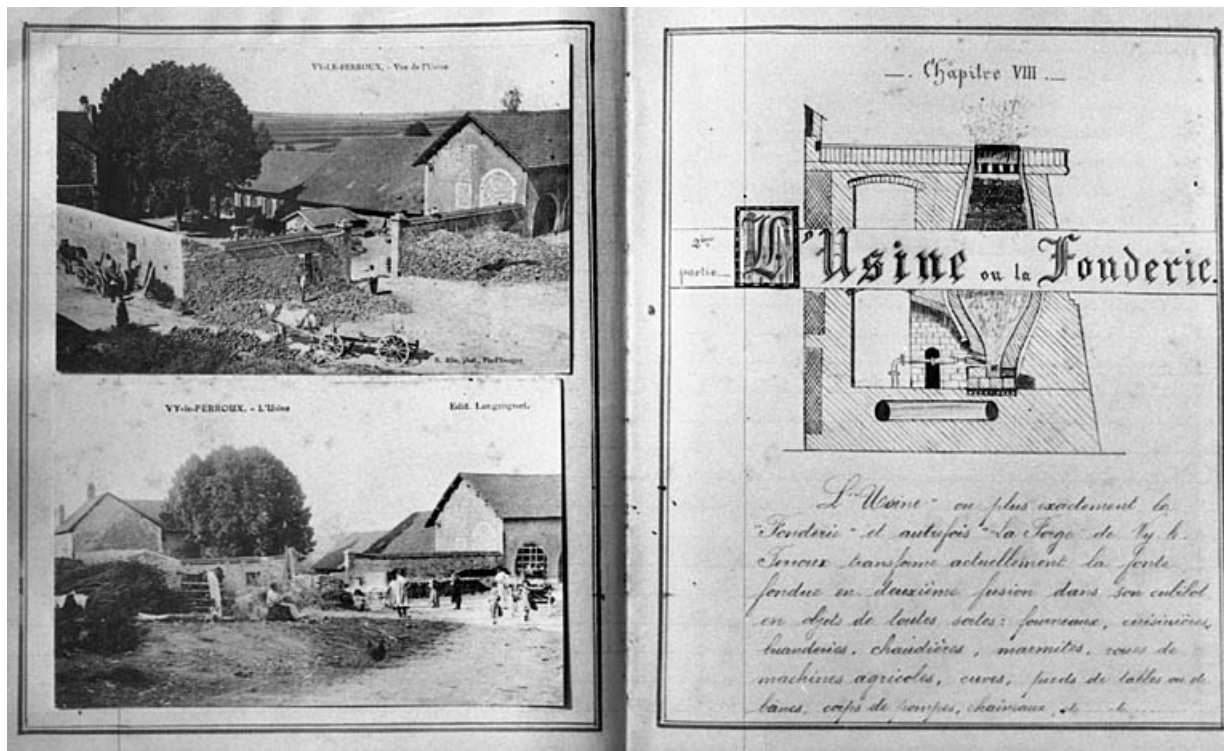 VY-LE-FERROUX. - Vue de l'Usine
VY-le-FERROUX. - L'Usine
Edit. Langrognet.
Chapitre VIII
2ème
partie
L'Usine ou la Fonderie.
L'"Usine" ou plus exactement la
"Fonderie" et autrefois "La Forge" de Vy-le-
Ferroux transforme actuellement la fonte
fondue en deuxième fusion dans son cubilot
en objets de toutes sortes: fourneaux, cuisinières,
buanderies, chaudières, marmites, roues de
machines agricoles, cuves, pieds de tables ou de
bancs, corps de pompes, chaineaux,